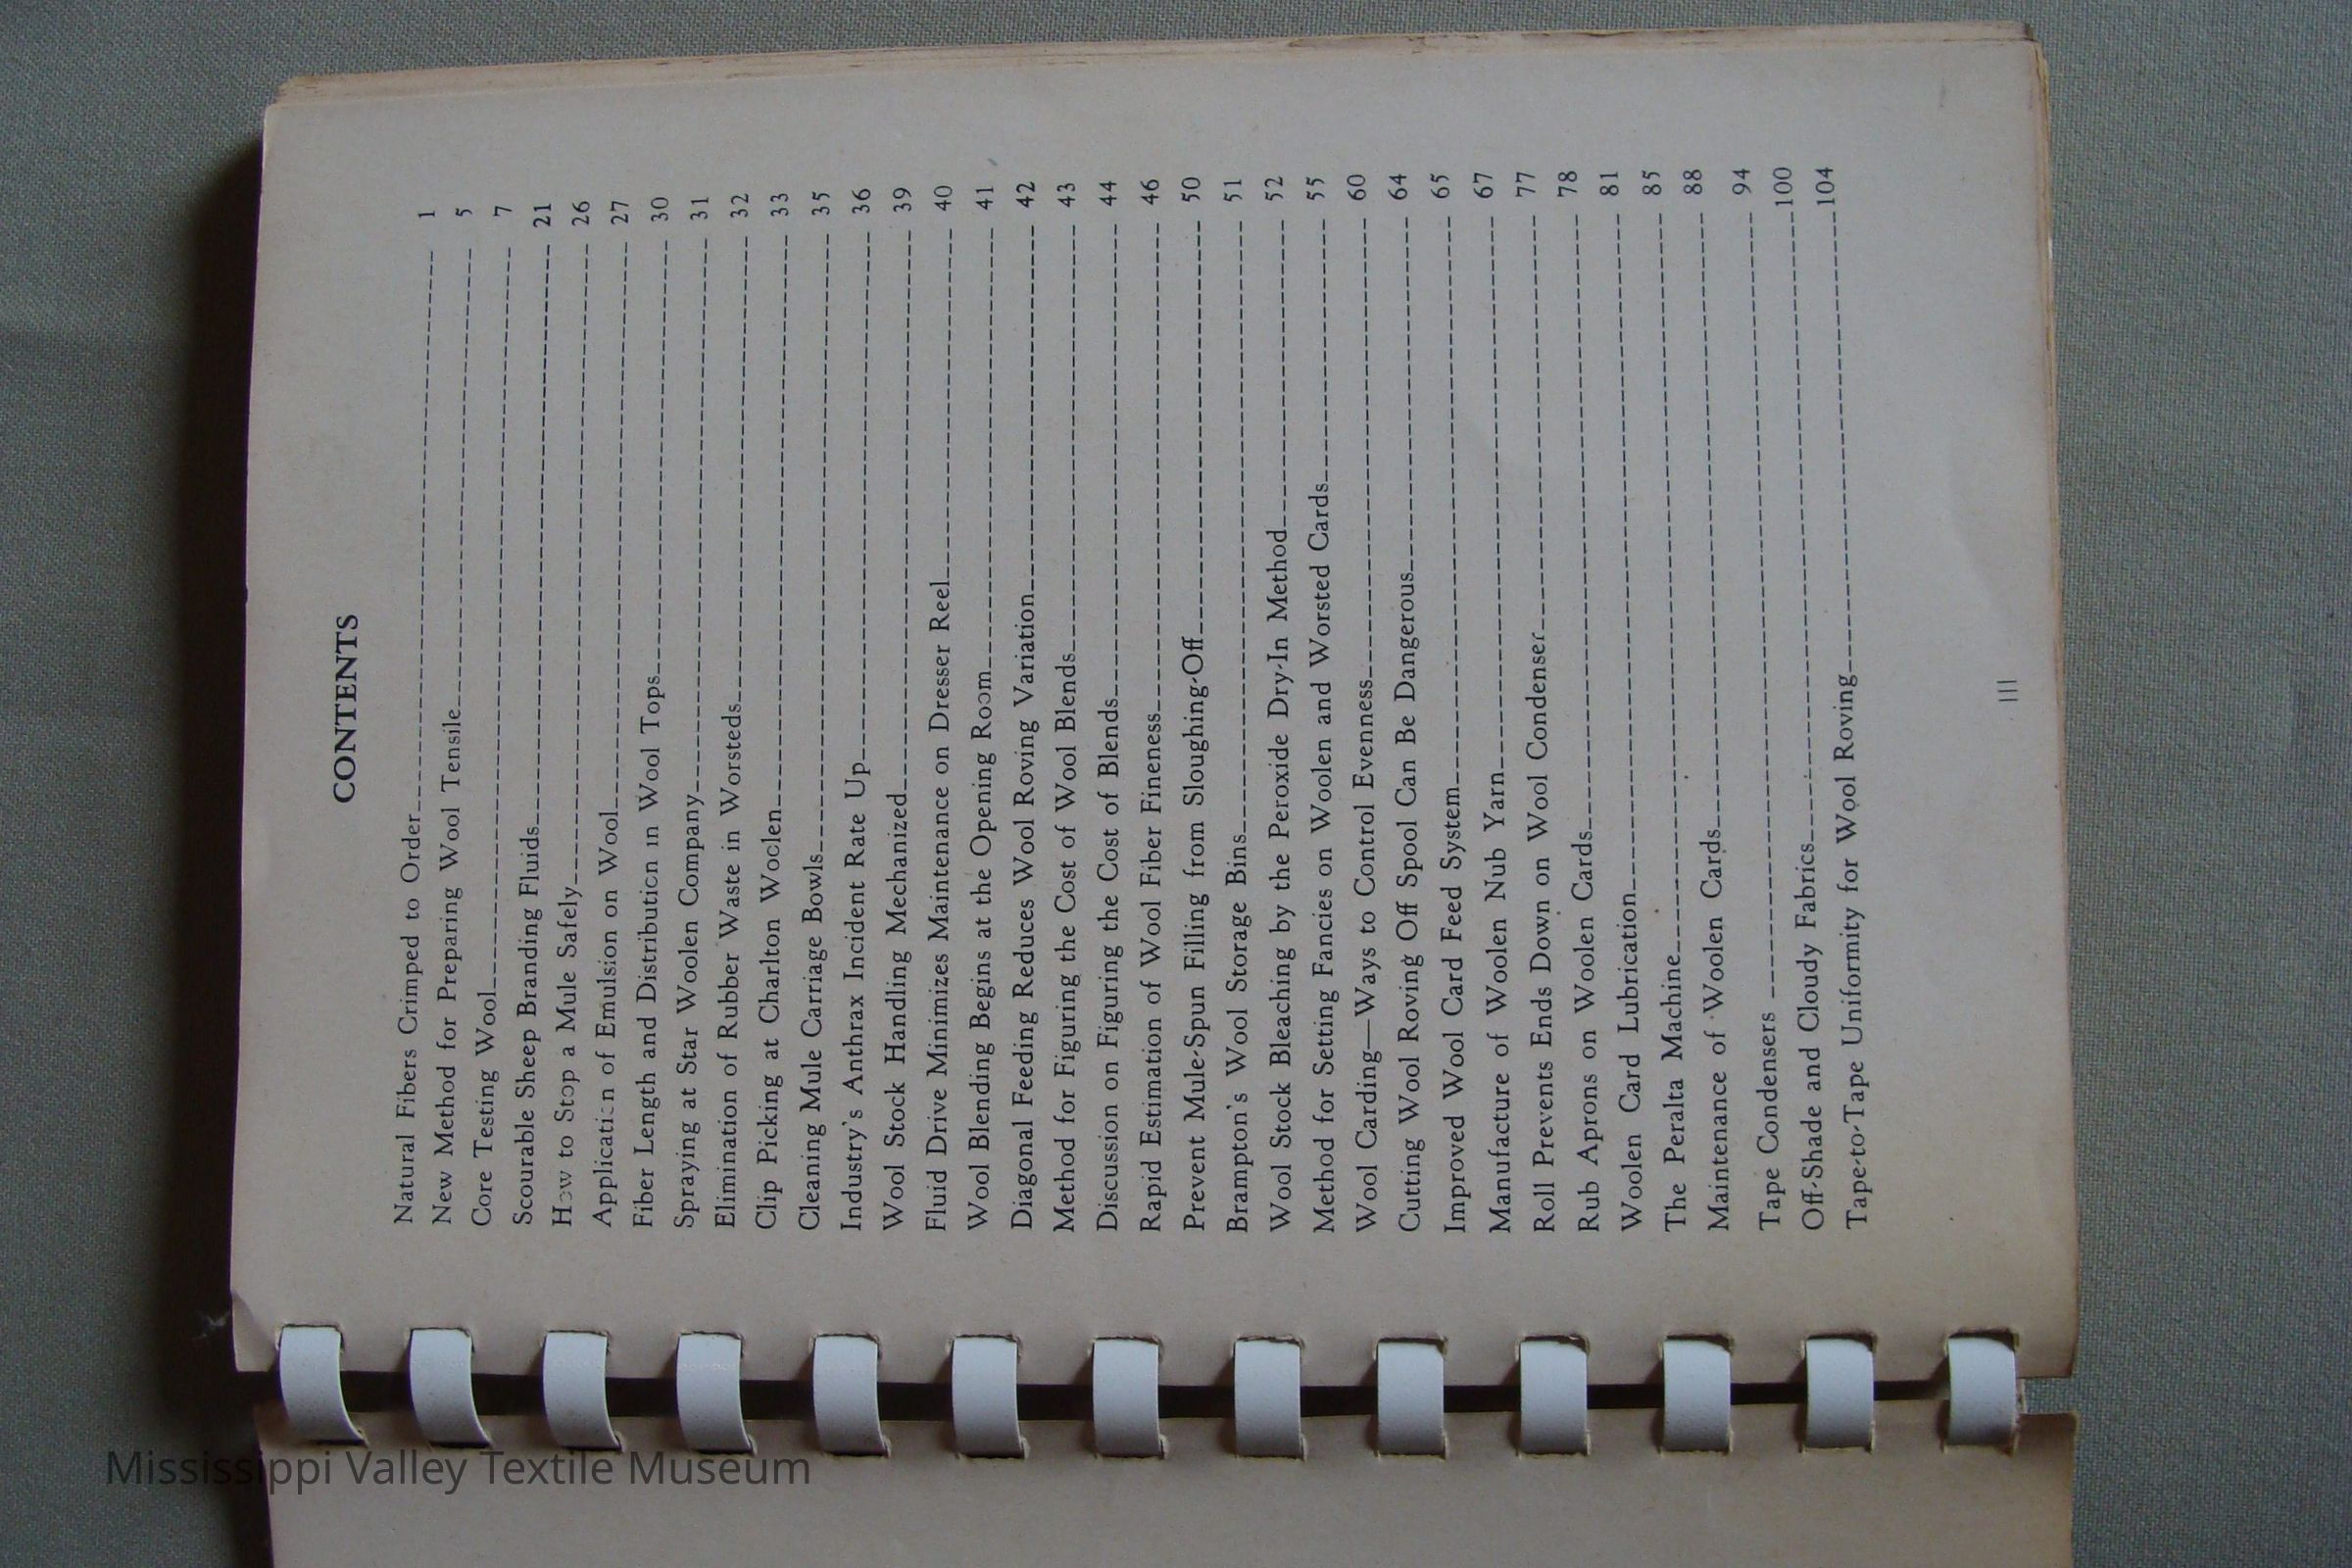 CONTENTS
Natural Fibers Crimped to Order 1
New Method for Preparing Wool Tensile 5
Core Testing Wool 7
Scourable Sheep Branding Fluids 21
How to Stop a Mule Safely 26
Application of Emulsion on Wool 27
Fiber Length and Distribution in Wool Tops 30
Spraying at Star Woolen Company 31
Elimination of Rubber Waste in Worsteds 32
Clip Picking at Charlton Woolen 33
Cleaning Mule Carriage Bowls 35
Industry's Anthrax Incident Rate Up 36
Wool Stock Handling Mechanized 39
Fluid Drive Minimizes Maintenance on Dresser Reel 40
Wool Blending Begins at the Opening Room 41
Diagonal Feeding Reduces Wool Roving Variation 42
Method for Figuring the Cost of Wool Blends 43
Discussion on Figuring the Cost of Blends 44
Rapid Estimation of Wool Fiber Fineness 46
Prevent Mule-Spun Filling from Sloughing-Off 50
Brampton's Wool Storage Bins 51
Wool Stock Bleaching by the Peroxide Dry-In Method 52
Method for Setting Fancies on Woolen and Worsted Cards 55
Wool Carding—Ways to Control Evenness 60
Cutting Wool Roving Off Spool Can Be Dangerous 64
Improved Wool Card Feed System 65
Manufacture of Woolen Nub Yarn 67
Roll Prevents Ends Down on Wool Condenser 77
Rub Aprons on Woolen Cards 78
Woolen Card Lubrication 81
The Peralta Machine 85
Maintenance of Woolen Cards 88
Tape Condensers 94
Off-Shade and Cloudy Fabrics 100
Tape-to-Tape Uniformity for Wool Roving 104
III
Mississippi Valley Textile Museum